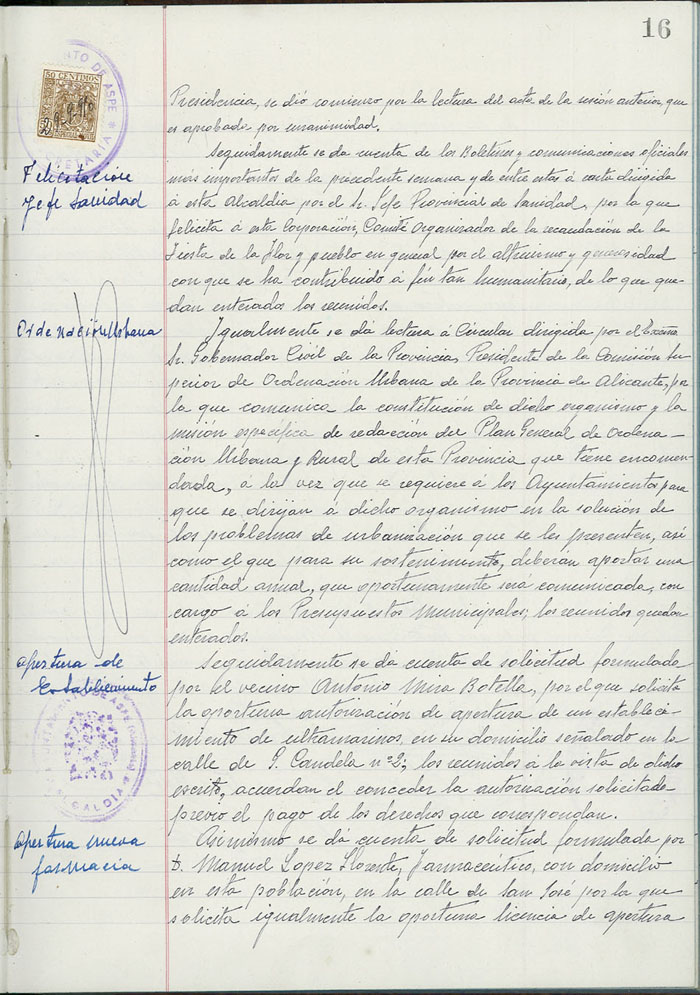 16
50 CENTIMOS
Presidencia, se dió comienzo por la lectura del acta de la sesión anterior, que
es aprobada por unanimidad.
Felicitación
Jefe Sanidad
Seguidamente se da cuenta de los Boletines y comunicaciones oficiales
más importantes de la precedente semana y de entre estas á carta dirigida
á esta Alcaldia por el Sr. Jefe Provincial de Sanidad, por la que
felicita á esta Corporación, Comité Organizador de la recaudación de la
Fiesta de la Flor y pueblo en general por el altruismo y generosidad
con que se ha contribuido á fin tan humanitario, de lo que que-
dan enterados los reunidos.
Ordenación Urbana
Igualmente se da lectura á Circular dirigida por el Excmo
Sr. Gobernador Civil de la Provincia, Presidente de la Comisión Su-
perior de Ordenación Urbana de la Provincia de Alicante, por
la que comunica la constitución de dicho organismo y la
misión específica de redacción del Plan General de Ordena-
ción Urbana y Rural de esta Provincia que tiene encomen-
dada, á la vez que se requiere á los Ayuntamientos para
que se dirijan á dicho organismo en la solución de
los problemas de urbanización que se les presenten, así
como el que para su sostenimiento, deberán aportar una
cantidad anual, que oportunamente será comunicada, con
cargo á los Presupuestos Municipales; los reunidos quedan
enterados.
apertura de
Establecimiento
Seguidamente se dá cuenta de solicitud formulada
por el vecino Antonio Mira Botella, por el que solicita
la oportuna autorización de apertura de un estableci-
miento de ultramarinos en su domicilio señalado en la
calle de S. Candela nº 2; los reunidos á la vista de dicho
escrito, acuerdan el conceder la autorización solicitada
previo el pago de los derechos que correspondan.
ALCALDIA
apertura nueva
farmacia
Asimismo se dá cuenta de solicitud formulada por
D. Manuel López Llorente, Farmacéutico, con domicilio
en esta población, en la calle de San José por la que
solicita igualmente la oportuna licencia de apertura